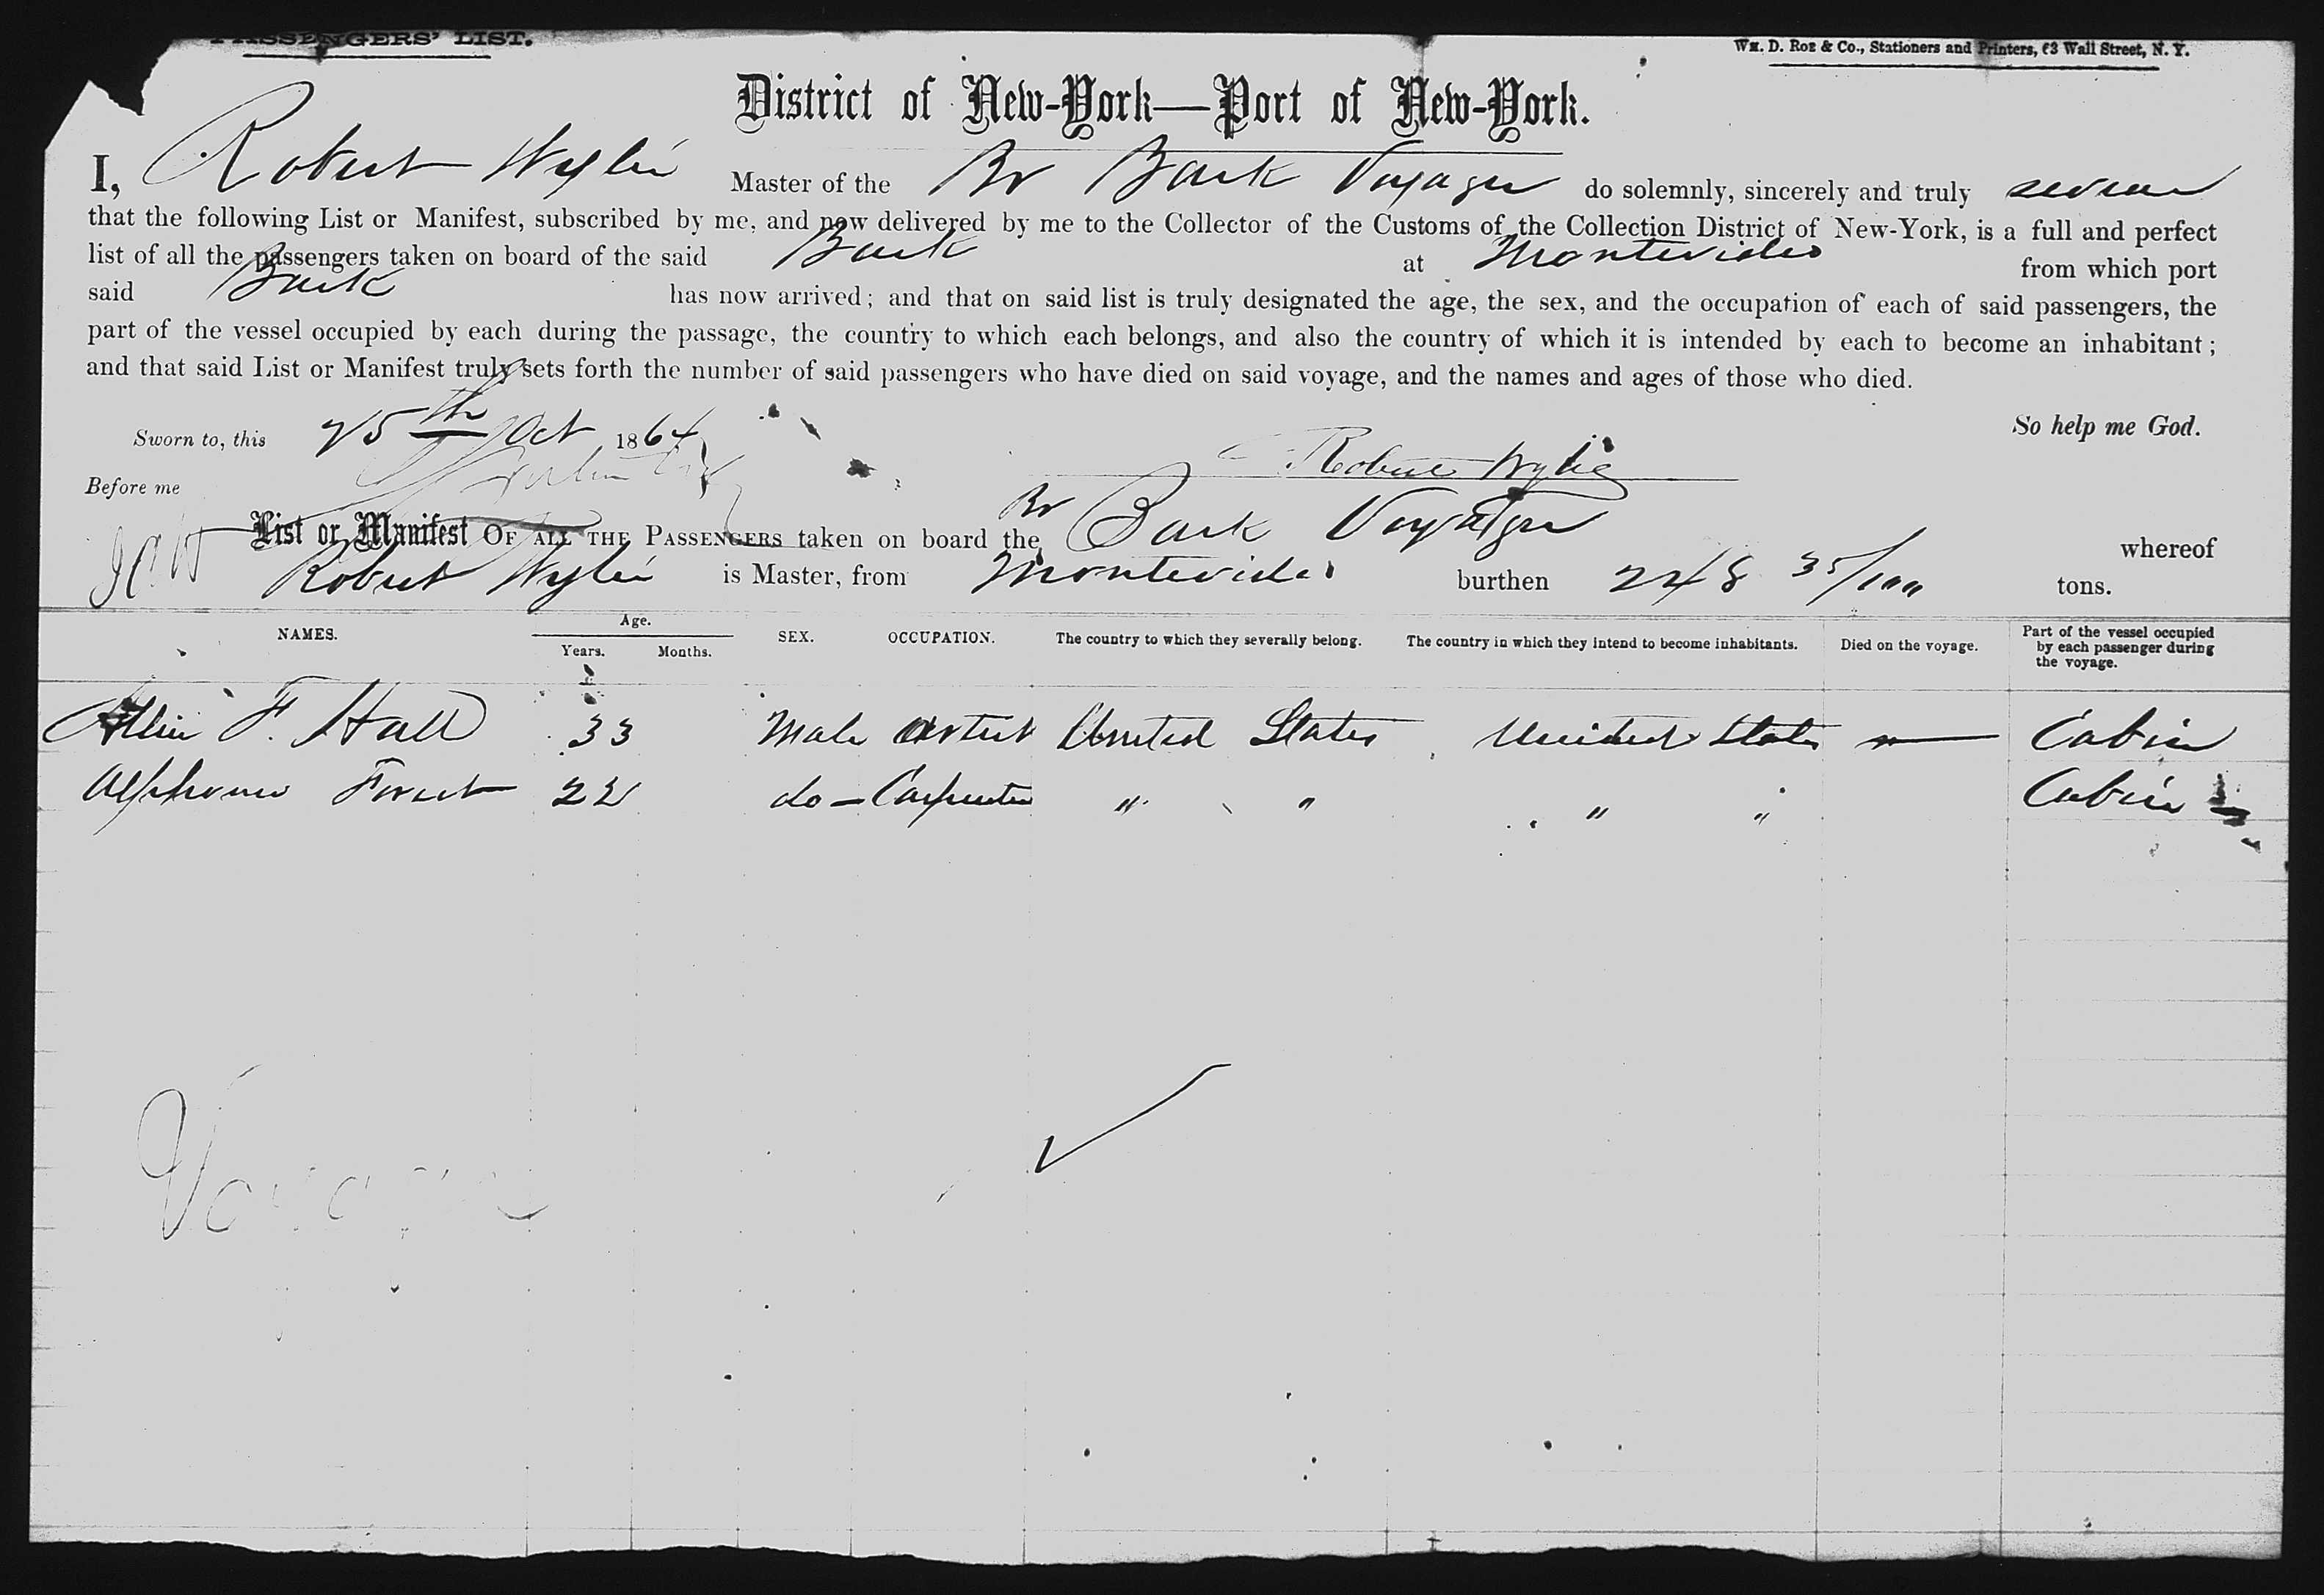 PASSENGERS' LIST.
Wm. D. Roe & Co., Stationers and Printers, 63 Wall Street, N. Y.
District of New-York—Port of New-York.
I, Robert Wylie Master of the Br Bark Voyager do solemnly, sincerely and truly swear
that the following List or Manifest, subscribed by me, and now delivered by me to the Collector of the Customs of the Collection District of New-York, is a full and perfect
list of all the passengers taken on board of the said Bark at Montevideo from which port
said Bark has now arrived; and that on said list is truly designated the age, the sex, and the occupation of each of said passengers, the
part of the vessel occupied by each during the passage, the country to which each belongs, and also the country of which it is intended by each to become an inhabitant;
and that said List or Manifest truly sets forth the number of said passengers who have died on said voyage, and the names and ages of those who died.
So help me God.
Sworn to, this 25th Oct 1864
Robert Wylie
Before me
List or Manifest OF ALL THE PASSENGERS taken on board the Br Bark Voyager whereof
Robert Wylie is Master, from Montevideo burthen 248 35/100 tons.
NAMES. Age. Years. Months. SEX. OCCUPATION. The country to which they severally belong. The country in which they intend to become inhabitants. Died on the voyage. Part of the vessel occupied by each passenger during the voyage.
F. Hall 33 Male Artist United States United States — Cabin
Alphonse Forest 22 do - Carpenter " " " " Cabin